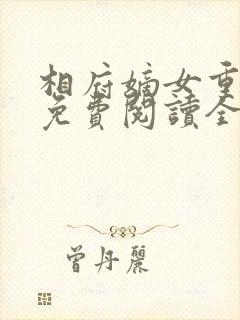 相府嫡女重
免費閱讀全
曾丹麗